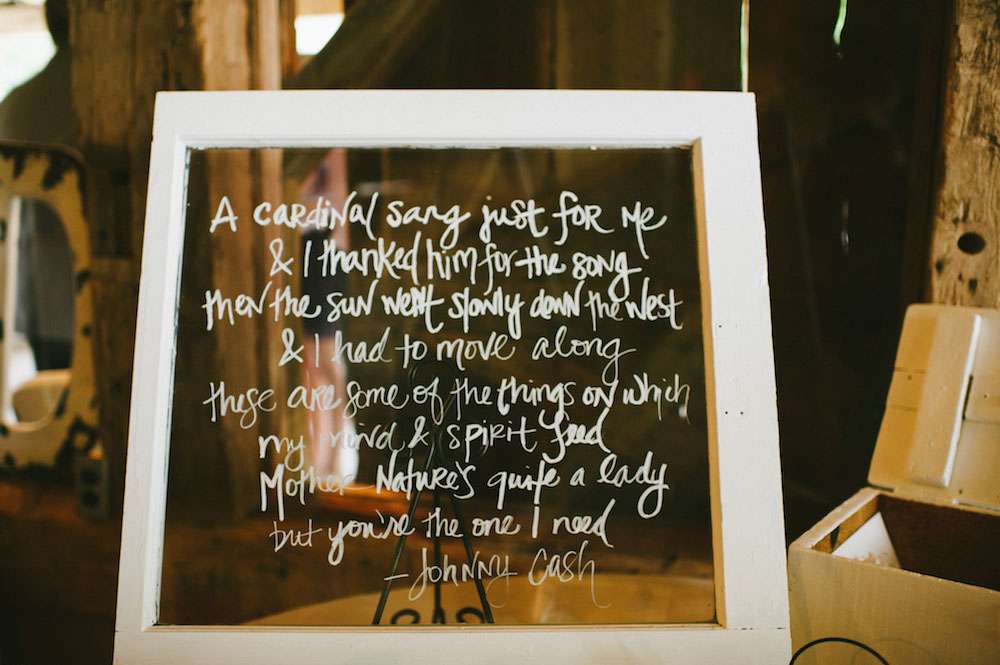 A cardinal sang just for me
& I thanked him for the song
then the sun went slowly down the west
& I had to move along
these are some of the things on which
my mind & spirit feed
Mother Nature's quite a lady
but you're the one I need
- Johnny Cash